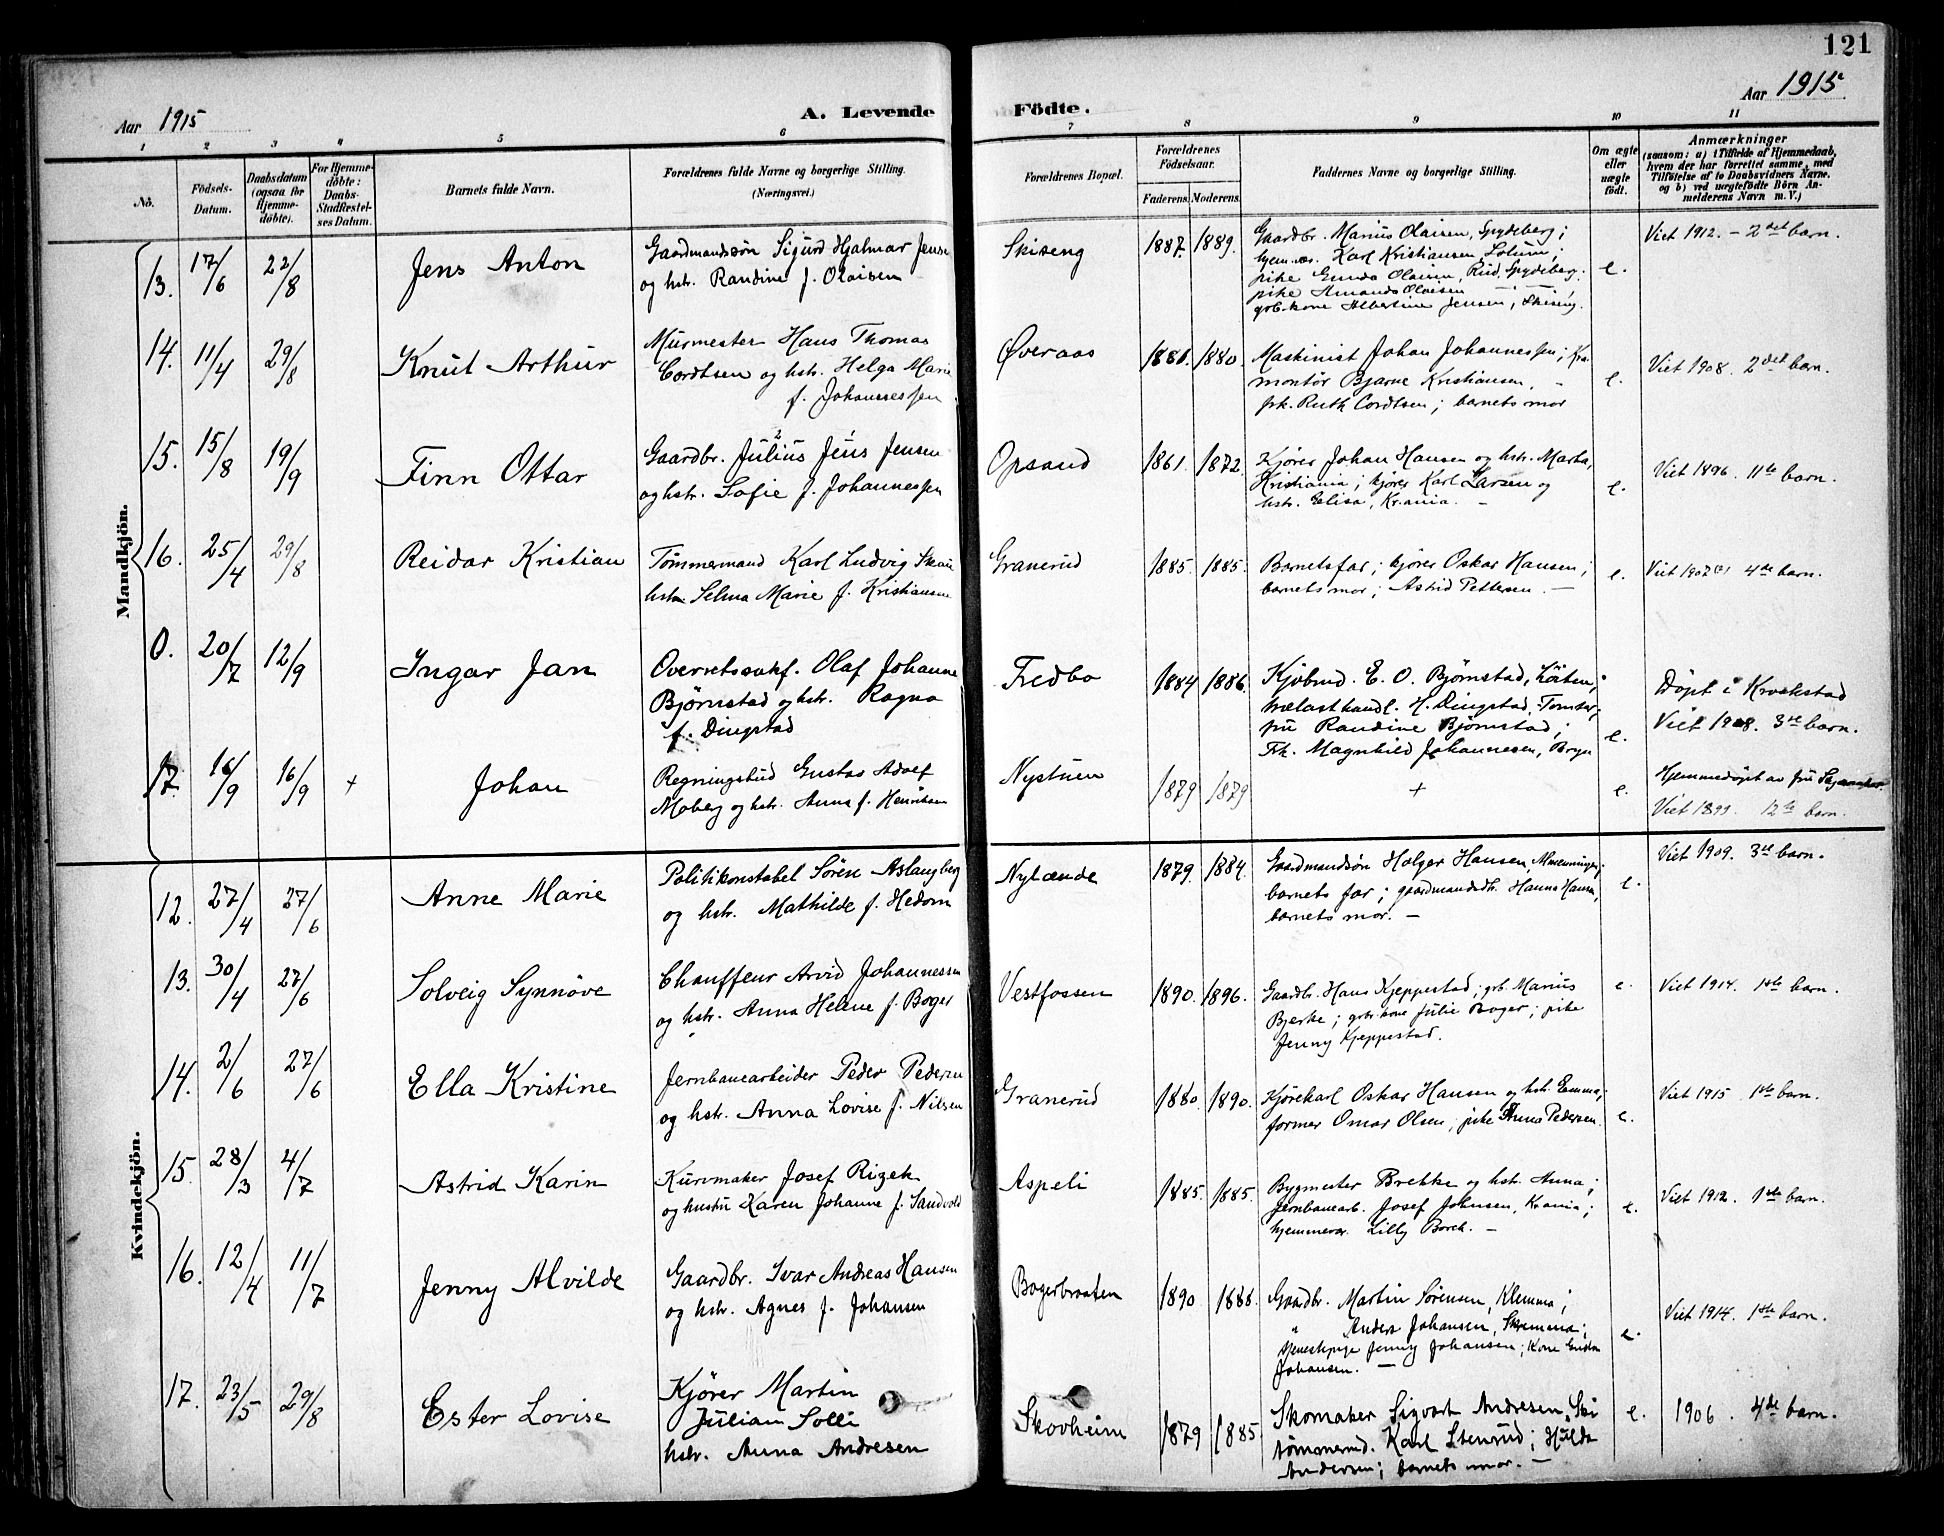 121
Aar 1915
Aar 1915
A. Levende Födte.
1 2 3 4 5 6 7 8 9 10 11
No.
Födsels-Datum.
Daabsdatum (ogsaa for Hjemme-döbte).
For Hjemme-döbte: Daabs-Stadfæstel-ses Datum.
Barnets fulde Navn.
Forældrenes fulde Navne og borgerlige Stilling.
(Næringsvei.)
Forældrenes Bopæl.
Forældrenes Födselsaar.
Faderens. Moderens.
Faddernes Navne og borgerlige Stilling.
Om ægte eller uægte födt.
Anmærkninger
(saasom: a) i Tilfælde af Hjemmedaab, hvem der har forrettet samme, med Tilföielse af to Daabsvidners Navne, og b) ved uægtefödte Börn Anmelderens Navn m. V.)
Mandkjön.
13. 17/6 22/8 Jens Anton
Gaardmandssön Sigurd Hjalmar Jensen
og hstr. Randine f. Olaisen
Skiseng 1887. 1889.
Gaardbr. Marius Olaisen, Spydeberg;
hjem.vær. Karl Kristiansen,
pike Gunda Olaisen, Rud, Spydeberg.
pike Amanda Olaisen
grb.kone Albertine Jensen, Skiseng.
e. Viet 1912. - 2det barn.
14. 11/4 29/8 Knut Arthur
Murmester Hans Thomas
Cordtsen og hstr. Helga Marie
f. Johannessen
Øveraas 1881. 1880.
Maskinist Johan Johannessen; Kra.
montör Bjarne Kristiansen, -
frk. Ruth Cordtsen; barnets mor
e. Viet 1908. 2det barn.
15. 15/8 19/9 Finn Ottar
Gaardbr. Julius Jens Jensen
og hstr. Sofie f. Johannessen
Opsand 1861. 1872.
Kjører Johan Hansen og hstr. Marta,
Kristiania; kjører Karl Larsen og
hstr. Elisa, Krania. -
e. Viet 1896. 11te barn.
16. 25/4 29/8 Reidar Kristian
Tømmermand Karl Ludvig Skau
hstr. Selma Marie f. Kristiansen
Granerud 1885. 1885.
Barnets far; kjører Oskar Hansen;
barnets mor; Astrid Pettersen. -
e. Viet 1907 (?) 4de barn.
0. 20/7 12/9 Ingar Jan
Overretssakf. Olaf Johannes
Bjørnstad og hstr. Ragna
f. Dingstad
Fredbo 1884 1886.
Kjøbmd. E. O. Bjørnstad, Løiten;
trælasthandl. H. Dingstad, Tomter;
fru Randine Bjørnstad;
Frk. Magnhild Johannesen, Bryn
e. Døpt i Kroekstad
Viet 1908. 3die barn.
17. 16/9 16/9 + Johan
Regningsbud Gustav Adolf
Moberg og hstr. Anna f. Henriksen
Nystuen 1879 1879 + e.
Hjemmedøpt av fru
Viet 1899. 12te barn.
Kvindekjön.
12. 27/4 27/6 Anne Marie
Politikonstabel Søren Aslangberg
og hstr. Mathilde f. Hedom
Nylænde 1879. 1884.
Gaardmandssön Holger Hansen,
barnets far; gaardmandsdt. Hanna Hansen,
barnets mor. -
e. Viet 1909. 3die barn.
13. 30/4 27/6 Solveig Synnöve
Chauffeur Arvid Johannessen
og hstr. Anna Helene f. Boger
Vestfossen 1890. 1896.
Gaardbr. Hans Kjeppestad; grb. Marius
Bjerke; grbr.kone Julie Boger; pike
Jenny Kjeppestad.
e. Viet 1914. 1ste barn.
14. 2/6 27/6 Ella Kristine
Jernbanearbeider Peder Pedersen
og hstr. Anna Lovise f. Nilsen
Granerud 1880. 1890.
Kjørekarl Oskar Hansen og hstr. Emma;
former Omar Olsen, pike Anna Pedersen.
e. Viet 1915 1ste barn.
15. 28/3 4/7 Astrid Karin
Kurvmaker Josef Rizek
og hustru Karen Johanne f. Sandvold
Aspeli 1885. 1885.
Bygmester Brekke og hstr. Anna;
Jernbanearb. Josef Johnsen, Krania;
hjemmevær. Lilly Borch. -
e. Viet 1912. 1ste barn.
16. 12/4 11/7 Jenny Alvilde
Gaardbr. Ivar Andreas Hansen
og hstr. Agnes f. Johansen
Bogerbraaten 1890 1888.
Gaardbr. Martin Sørensen, Klemma;
" Anders Johansen, Skremma;
tjenestepige Jenny Johansen; Kone
Johansen. -
e. Viet 1914. 1ste barn.
17. 23/5 29/8 Ester Lovise
Kjører Martin
Julian Solli
hstr. Anna Andresen
Skovheim 1879 1885.
Skomaker Sigvart Andresen, Ski
tømmermd. Karl Stenrud; Hulda
Andersen; barnets mor. -
e. 1906. 4de barn.